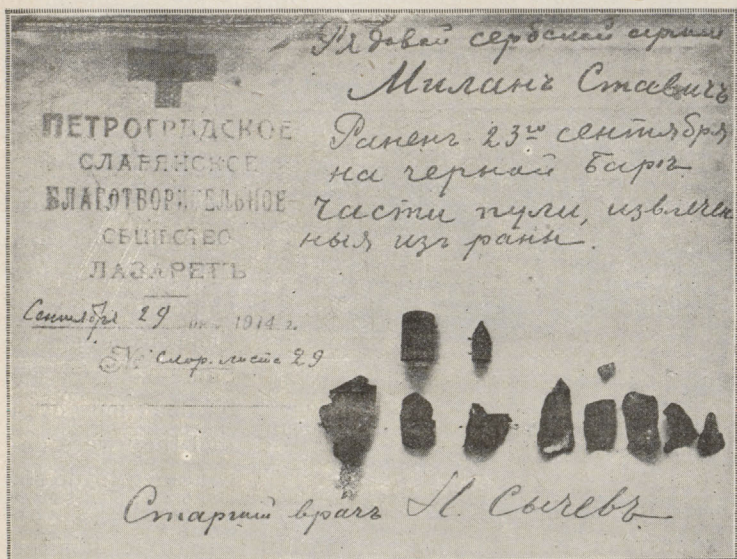 ПЕТРОГРАДСКОЕ
СЛАВЯНСКОЕ
БЛАГОТВОРИТЕЛЬНОЕ
ОБЩЕСТВО
ЛАЗАРЕТЪ
Сентября 29 1914 г.
№ скор. листа 29
Рядовой сербской армии
Миланъ Ставичъ
Раненъ 23го сентября
на черной баръ
Части пули, извлечен
ныя изъ раны.
Старший врачъ Н. Сычевъ